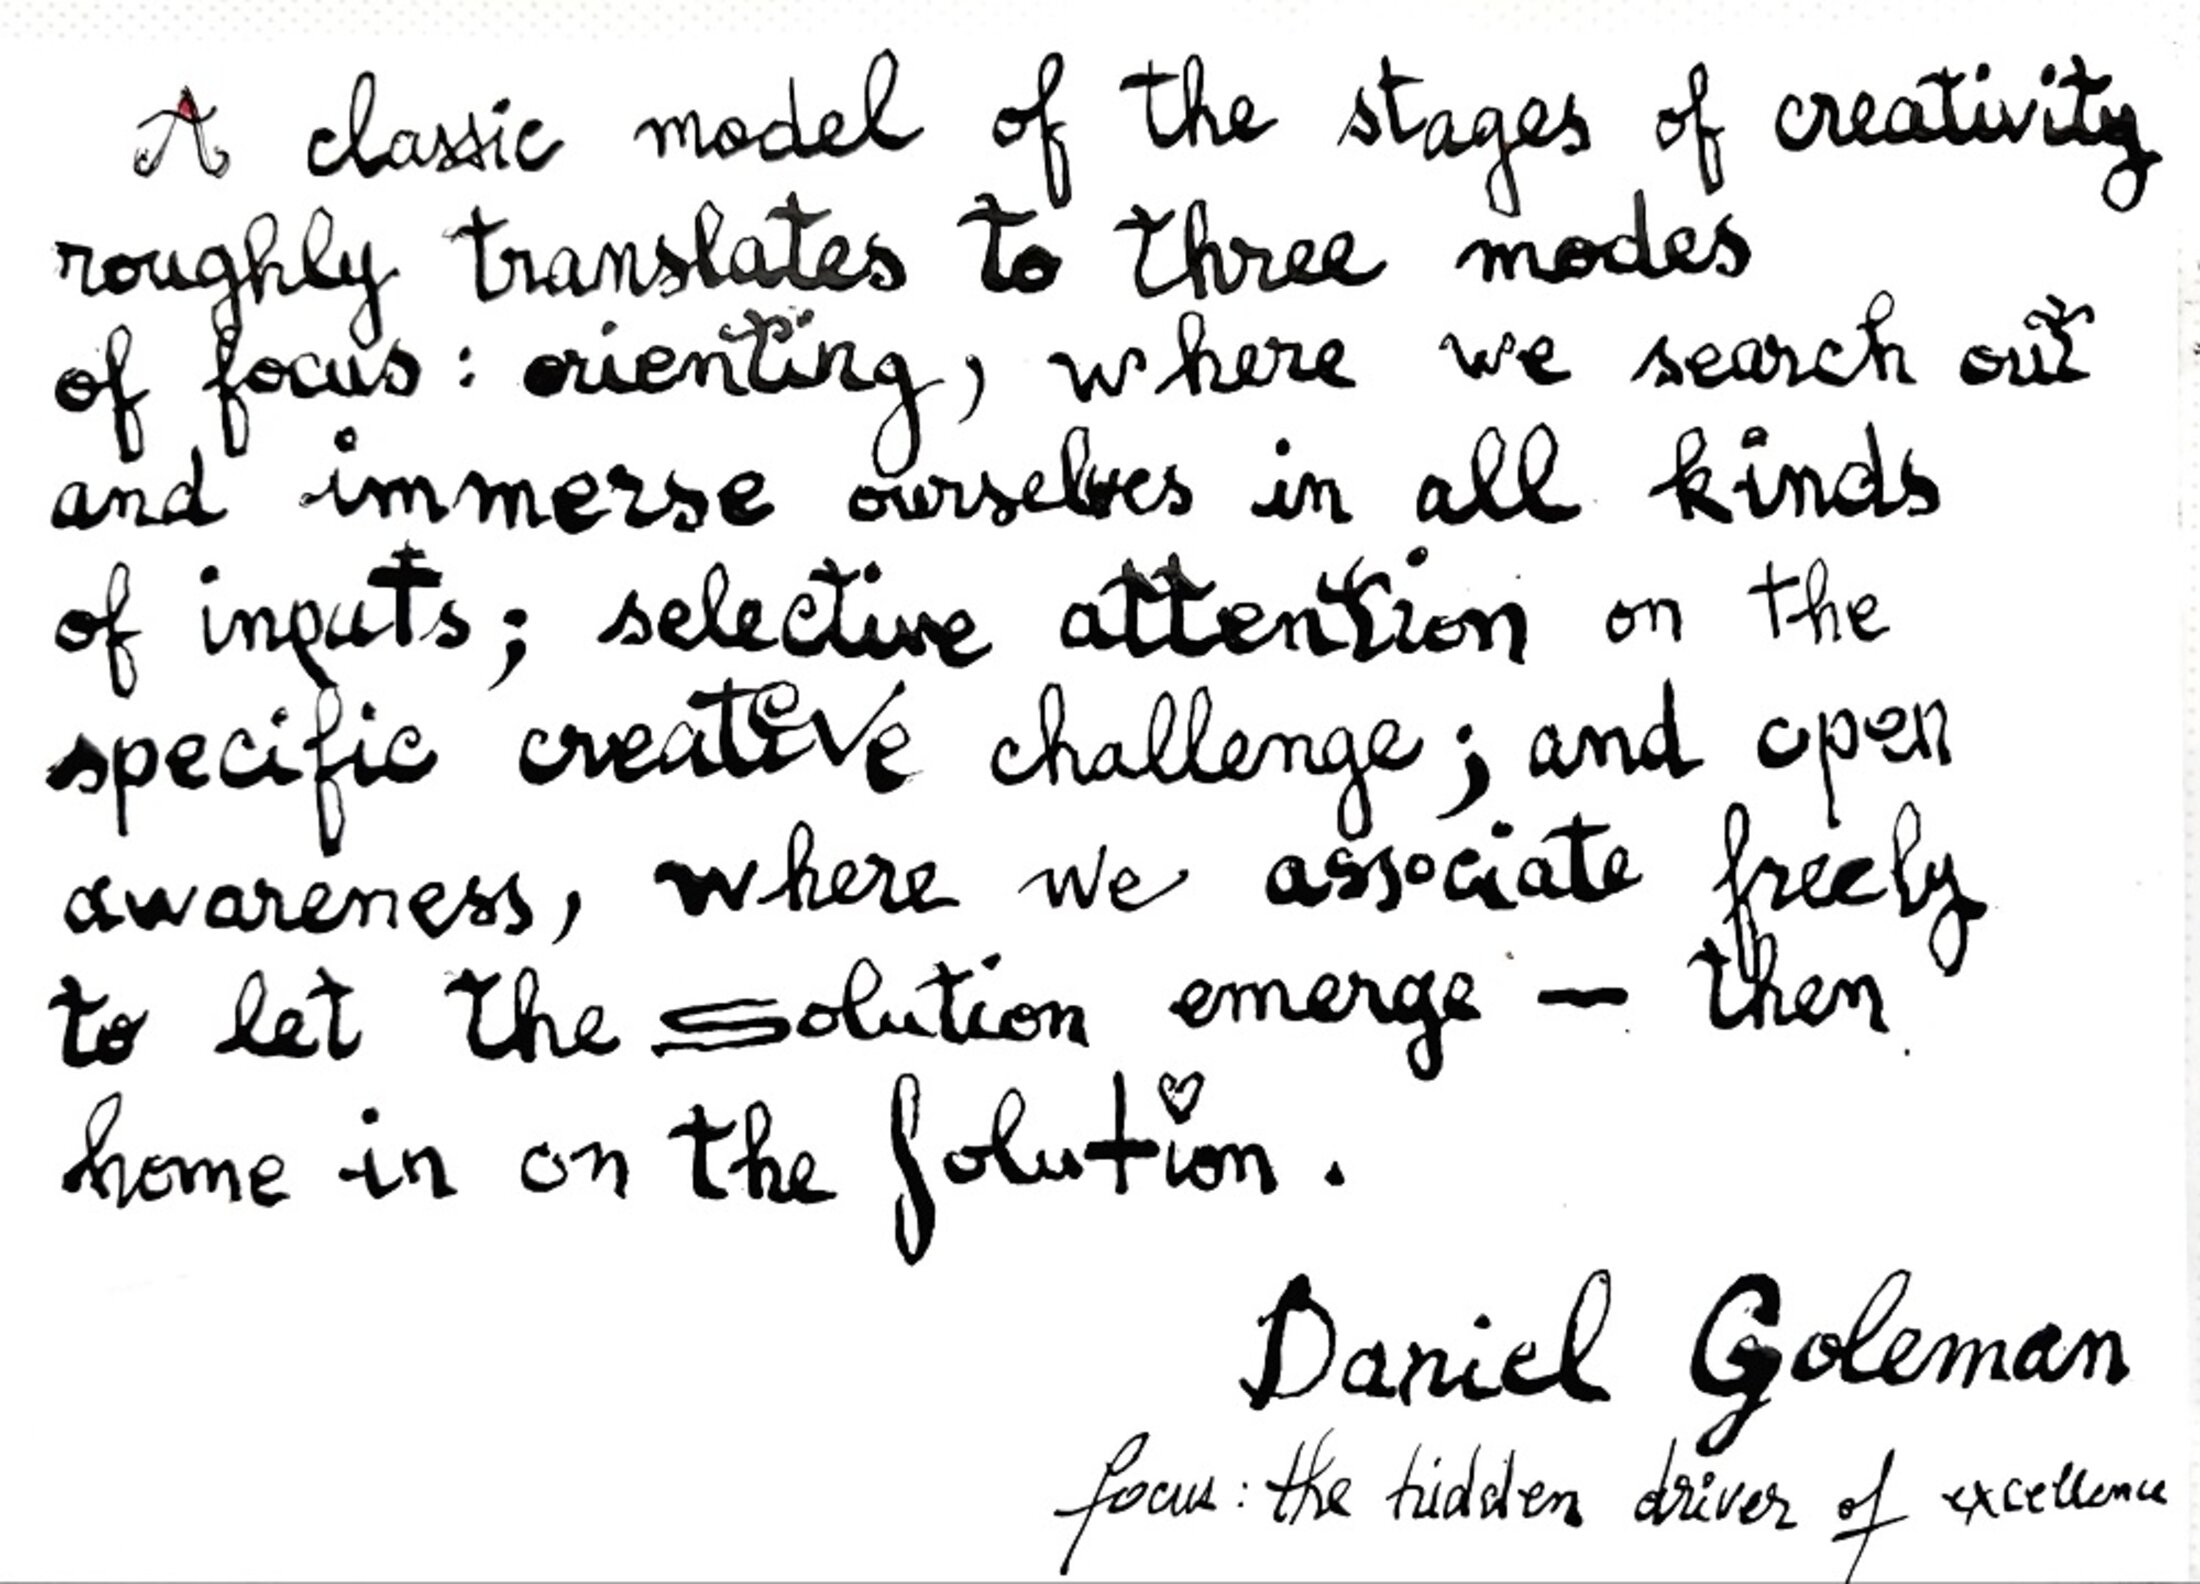 A classic model of the stages of creativity
roughly translates to three modes
of focus: orienting, where we search out
and immerse ourselves in all kinds
of inputs; selective attention on the
specific creative challenge; and open
awareness, where we associate freely
to let the solution emerge — then
home in on the solution.
Daniel Goleman
focus: the hidden driver of excellence